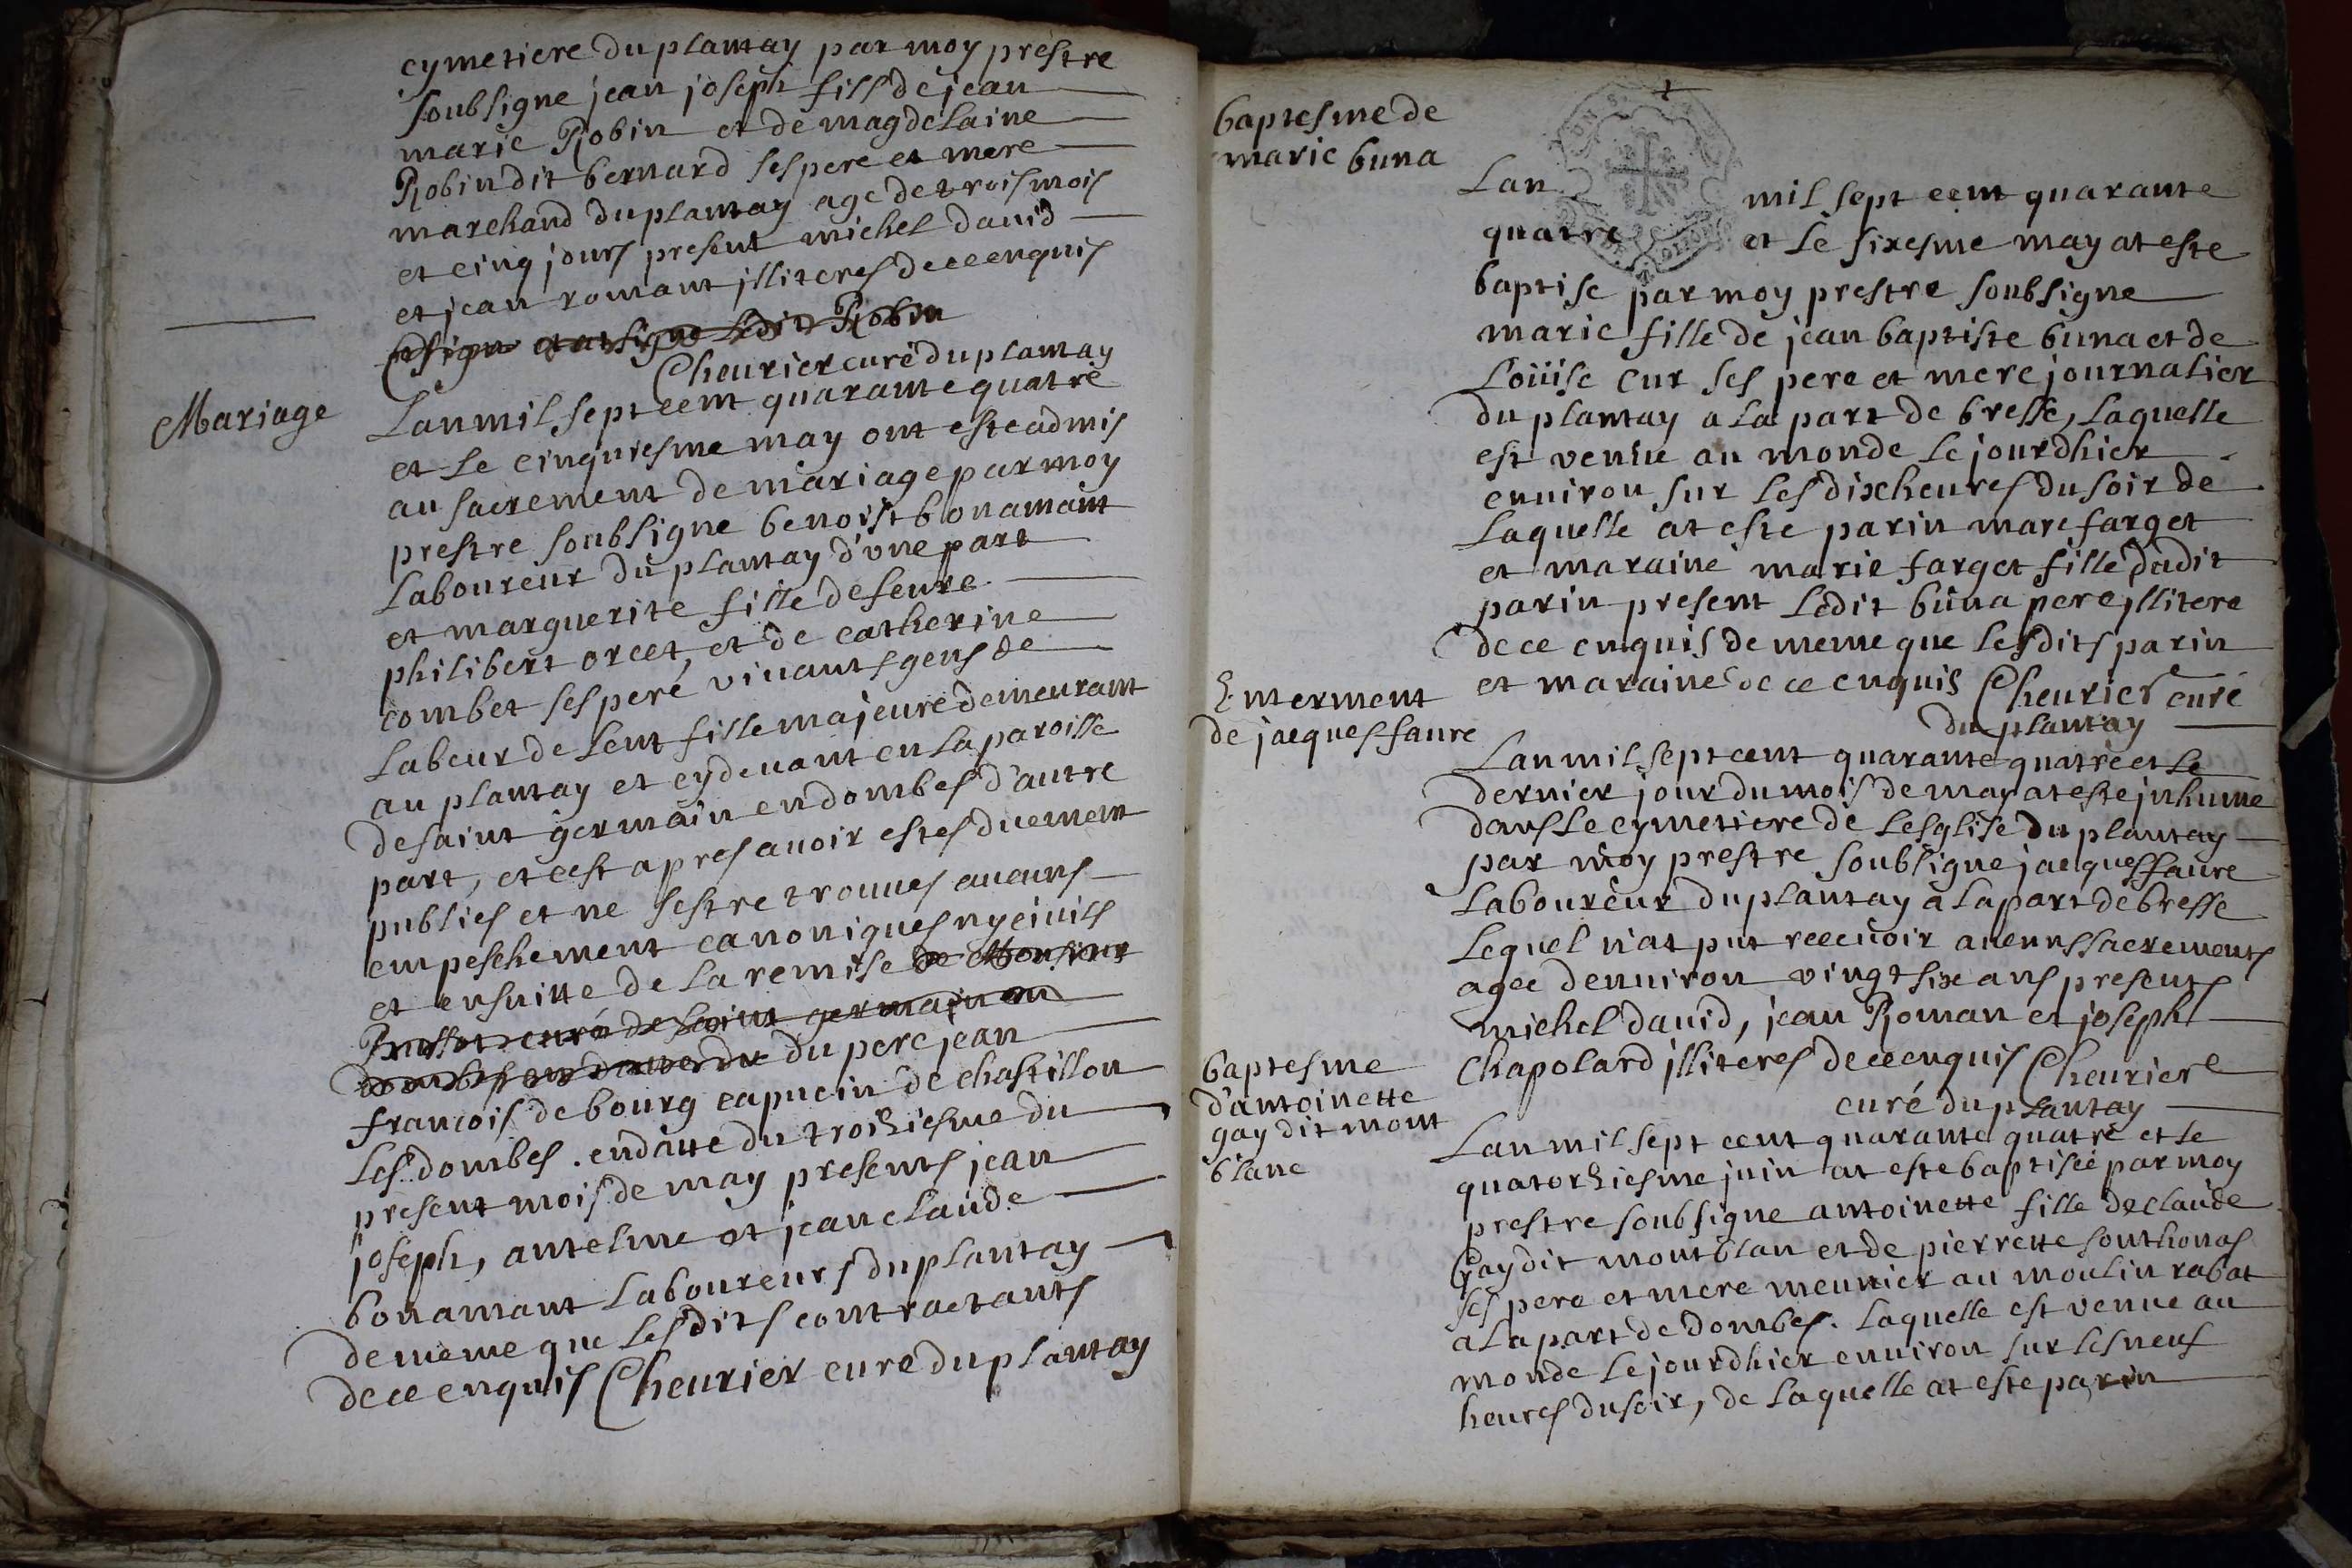 cymetiere du plantay par moy prestre
soubsigne jean joseph fils de jean
marie Robin et de magdelaine
Robin dit bernard ses pere et mere
marchand du plantay age de trois mois
et cinq jours present michel david
et jean romant jlliteres de ce enquis
et signe ledit Robin
Cheurier curé du plantay
Mariage
Lan mil sept cent quarante quatre
et le cinquiesme may ont este admis
au sacrement de mariage par moy
prestre soubsigne benoist bonamant
laboureur du plantay d'une part
et marguerite fille de feure
philibert orcet, et de catherine
combet ses peré vivants gens de
labeur de leur fille majeure demeurant
au plantay et cydeuant en la paroisse
de saint germain en dombes d'autre
part, et cest apres auoir estes duement
publies et ne sestre trouues aucuns
empeschement canoniques ny ciuils
et ensuitte de la remise de Monsieur
curé de saint germain en
dombes du pere jean
francois de bourg capucin de chastillon
les dombes . en datte du troiziesme du
present mois de may presents jean
joseph, antelme et jean claude
bonamant laboureurs du plantay
de meme que lesdits contractants
de ce enquis Cheurier curé du plantay
baptesme de
marie buna
Lan mil sept cent quarante
quatre et le sixesme may at este
baptise par moy prestre soubsigne
marie fille de jean baptiste buna et de
Loüise cur ses pere et mere journalier
du plantay a la part de bresse, laquelle
est venüe au monde le jourdhier
enuiron sur les dix heures du soir de
laquelle at este parin marc farget
et maraine marie farget fille dudit
parin present ledit buna pere jllitere
de ce enquis de meme que lesdits parin
et maraine de ce enquis Cheurier curé
du plantay
Enterment
de jacques faure
Lan mil sept cent quarante quatre et le
dernier jour du mois de may at este jnhume
dans le cymetiere de lesglise du plantay
par moy prestre soubsigne jacques faure
laboureur du plantay a la part de bresse
lequel n'at put receuoir aucuns sacrements
agee denuiron vingt six ans presents
michel dauid, jean Roman et joseph
Chapolard jlliteres de ce enquis Cheurier
curé du plantay
baptesme
d'antoinette
gay dit mont
blanc
Lan mil sept cent quarante quatre et le
quatorziesme juin at este baptiseé par moy
prestre soubsigne antoinette fille de claude
Gay dit montblan et de pierrette southonas
ses pere et mere meunier au moulin rabat
a la part de dombes. laquelle est venue au
monde le jourdhier enuiron sur les neuf
heures du soir, de laquelle at este parin